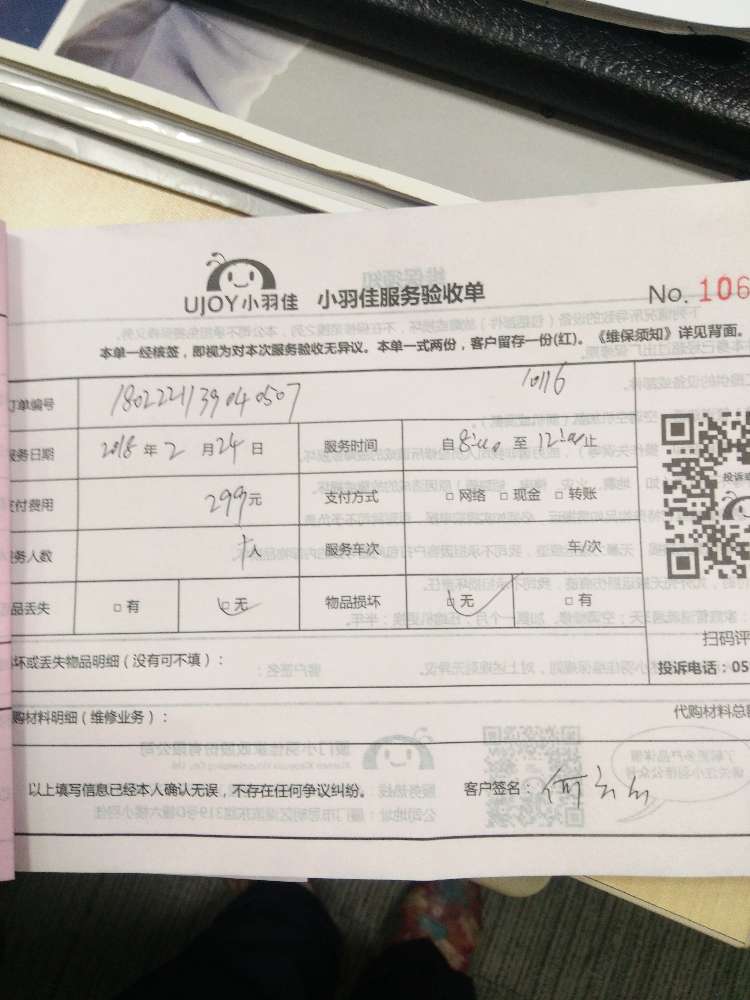 UJOY小羽佳 小羽佳服务验收单 No. 106
本单一经核签，即视为对本次服务验收无异议。本单一式两份，客户留存一份(红)。《维保须知》详见背面。
订单编号 1802221139040507 10116
服务日期 2018年2月24日 服务时间 自8:00至12:00止
支付费用 299元 支付方式 □网络 □现金 □转账
服务人数 人 服务车次 车/次
物品丢失 □有 □无 物品损坏 □无 □有
坏或丢失物品明细（没有可不填）：
扫码评
投诉电话：05
购材料明细（维修业务）：
代购材料总
以上填写信息已经本人确认无误，不存在任何争议纠纷。 客户签名：何